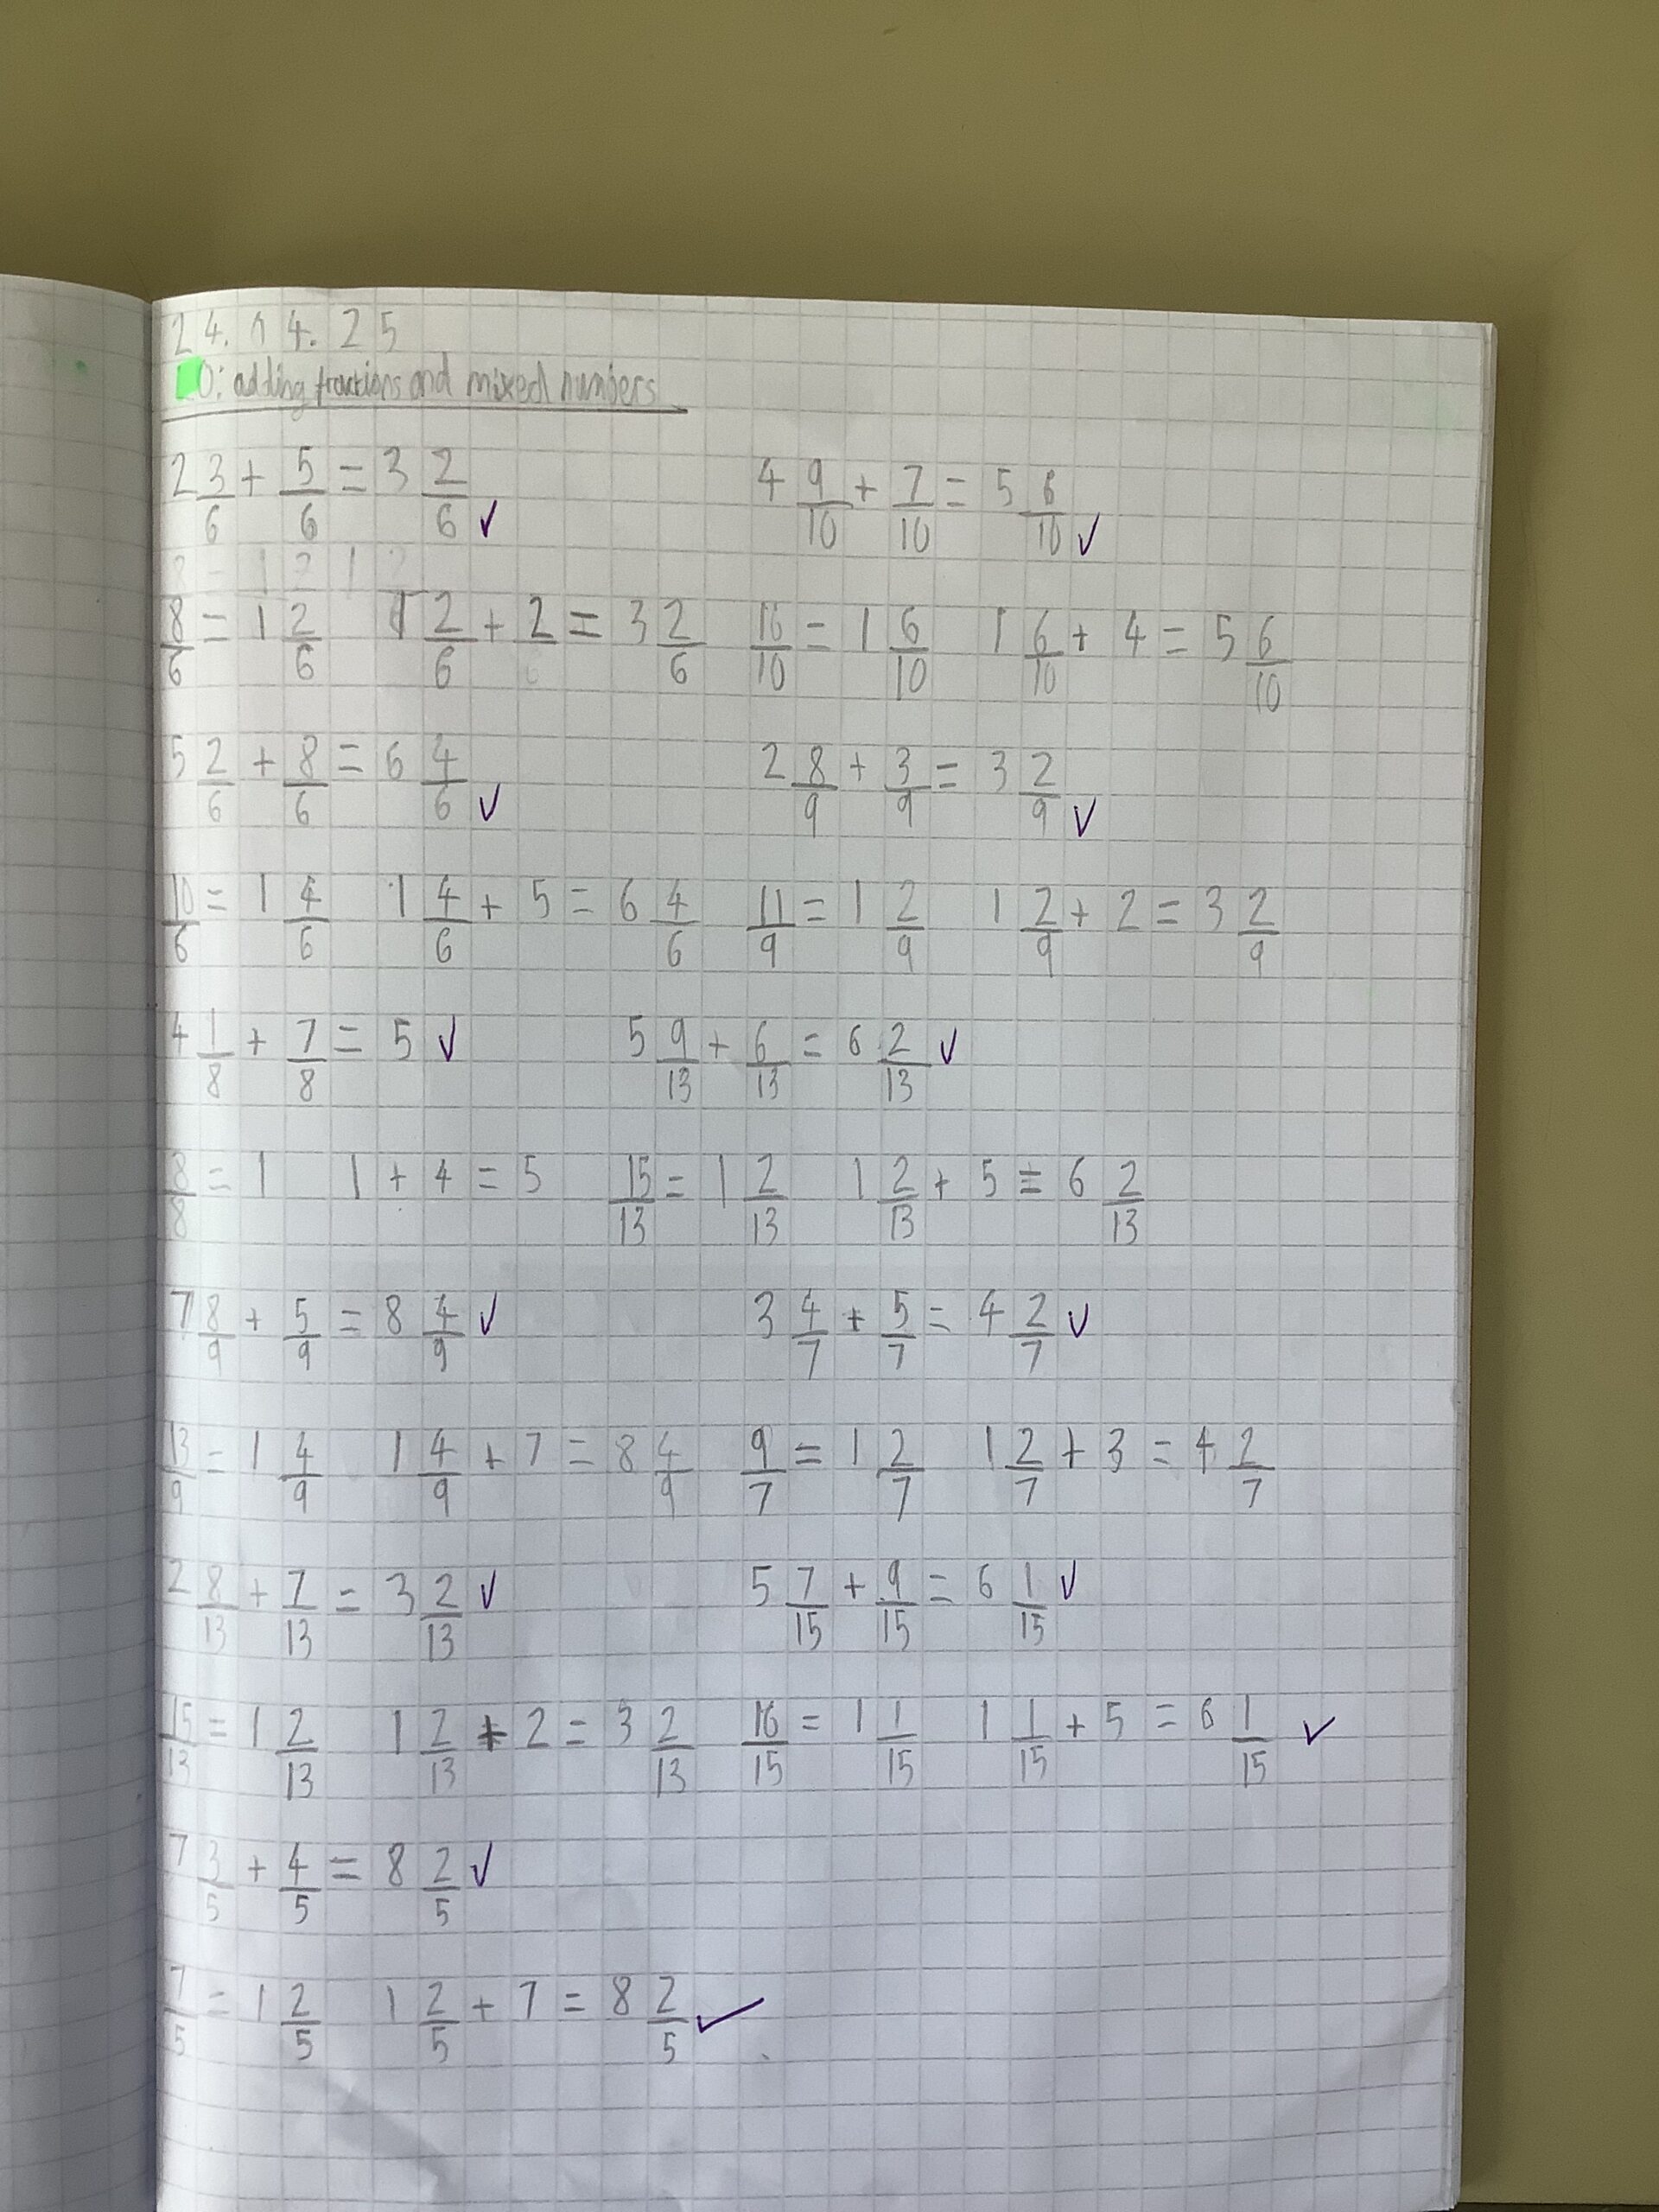 24.04.25
LO: adding fractions and mixed numbers
2 3/6 + 5/6 = 3 2/6 ✓ 4 9/10 + 7/10 = 5 6/10 ✓
8/6 = 1 2/6 1 2/6 + 2 = 3 2/6 16/10 = 1 6/10 1 6/10 + 4 = 5 6/10
5 2/6 + 8/6 = 6 4/6 ✓ 2 8/9 + 3/9 = 3 2/9 ✓
10/6 = 1 4/6 1 4/6 + 5 = 6 4/6 11/9 = 1 2/9 1 2/9 + 2 = 3 2/9
4 1/8 + 7/8 = 5 ✓ 5 9/13 + 6/13 = 6 2/13 ✓
8/8 = 1 1 + 4 = 5 15/13 = 1 2/13 1 2/13 + 5 = 6 2/13
7 8/9 + 5/9 = 8 4/9 ✓ 3 4/7 + 5/7 = 4 2/7 ✓
13/9 = 1 4/9 1 4/9 + 7 = 8 4/9 9/7 = 1 2/7 1 2/7 + 3 = 4 2/7
2 8/13 + 7/13 = 3 2/13 ✓ 5 7/15 + 9/15 = 6 1/15 ✓
15/13 = 1 2/13 1 2/13 + 2 = 3 2/13 16/15 = 1 1/15 1 1/15 + 5 = 6 1/15 ✓
7 3/5 + 4/5 = 8 2/5 ✓
7/5 = 1 2/5 1 2/5 + 7 = 8 2/5 ✓